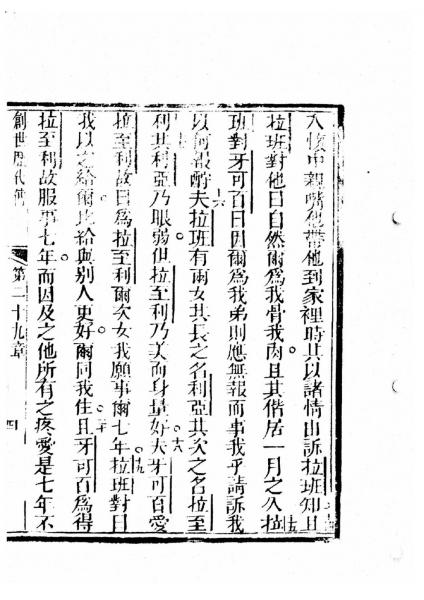 入懷中親嘴他帶他到家裡時其以諸情由訴拉班知且
拉班對他曰自然爾為我骨我肉且其偕居一月之久拉
班對牙可百曰因爾為我弟則應無報而事我乎請訴我
以何報酧夫拉班有兩女其長之名利亞其次之名拉至
利其利亞乃眼弱但拉至利乃美而身量好夫牙可百愛
拉至利故曰為拉至利爾次女我願事爾七年拉班對曰
我以之給爾比給與別人更好爾同我住且牙可百為得
拉至利故服事七年而因及之他所有之疼愛是七年不
創世歷代傳 第二十九章 四